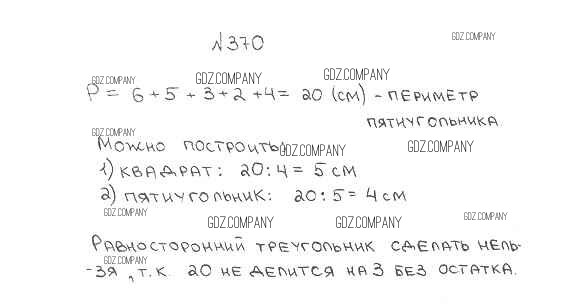 №370
GDZ.COMPANY
GDZ.COMPANY GDZ.COMPANY GDZ.COMPANY
P = 6 + 5 + 3 + 2 + 4 = 20 (см) - периметр
пятиугольника
GDZ.COMPANY
Можно построить: GDZ.COMPANY GDZ.COMPANY
1) квадрат: 20 : 4 = 5 см
2) пятиугольник: 20 : 5 = 4 см
GDZ.COMPANY GDZ.COMPANY GDZ.COMPANY GDZ.COMPANY
Равносторонний треугольник сделать нель-
GDZ.COMPANY
-зя, т.к. 20 не делится на 3 без остатка.